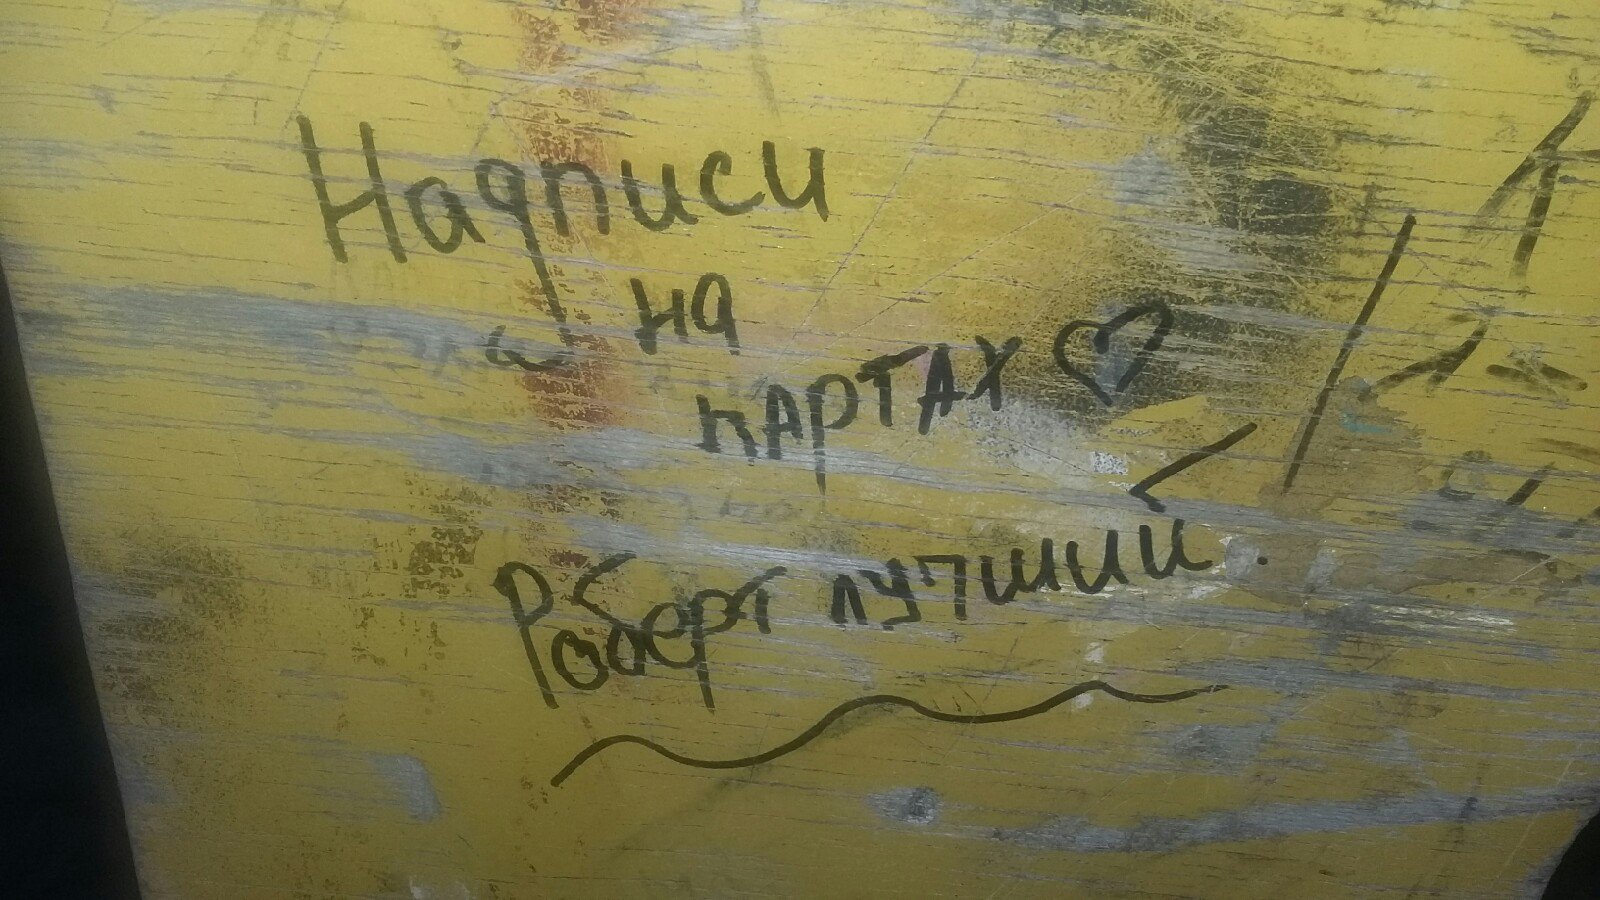 Надписи
на
картах ♡
Роберт лучший.